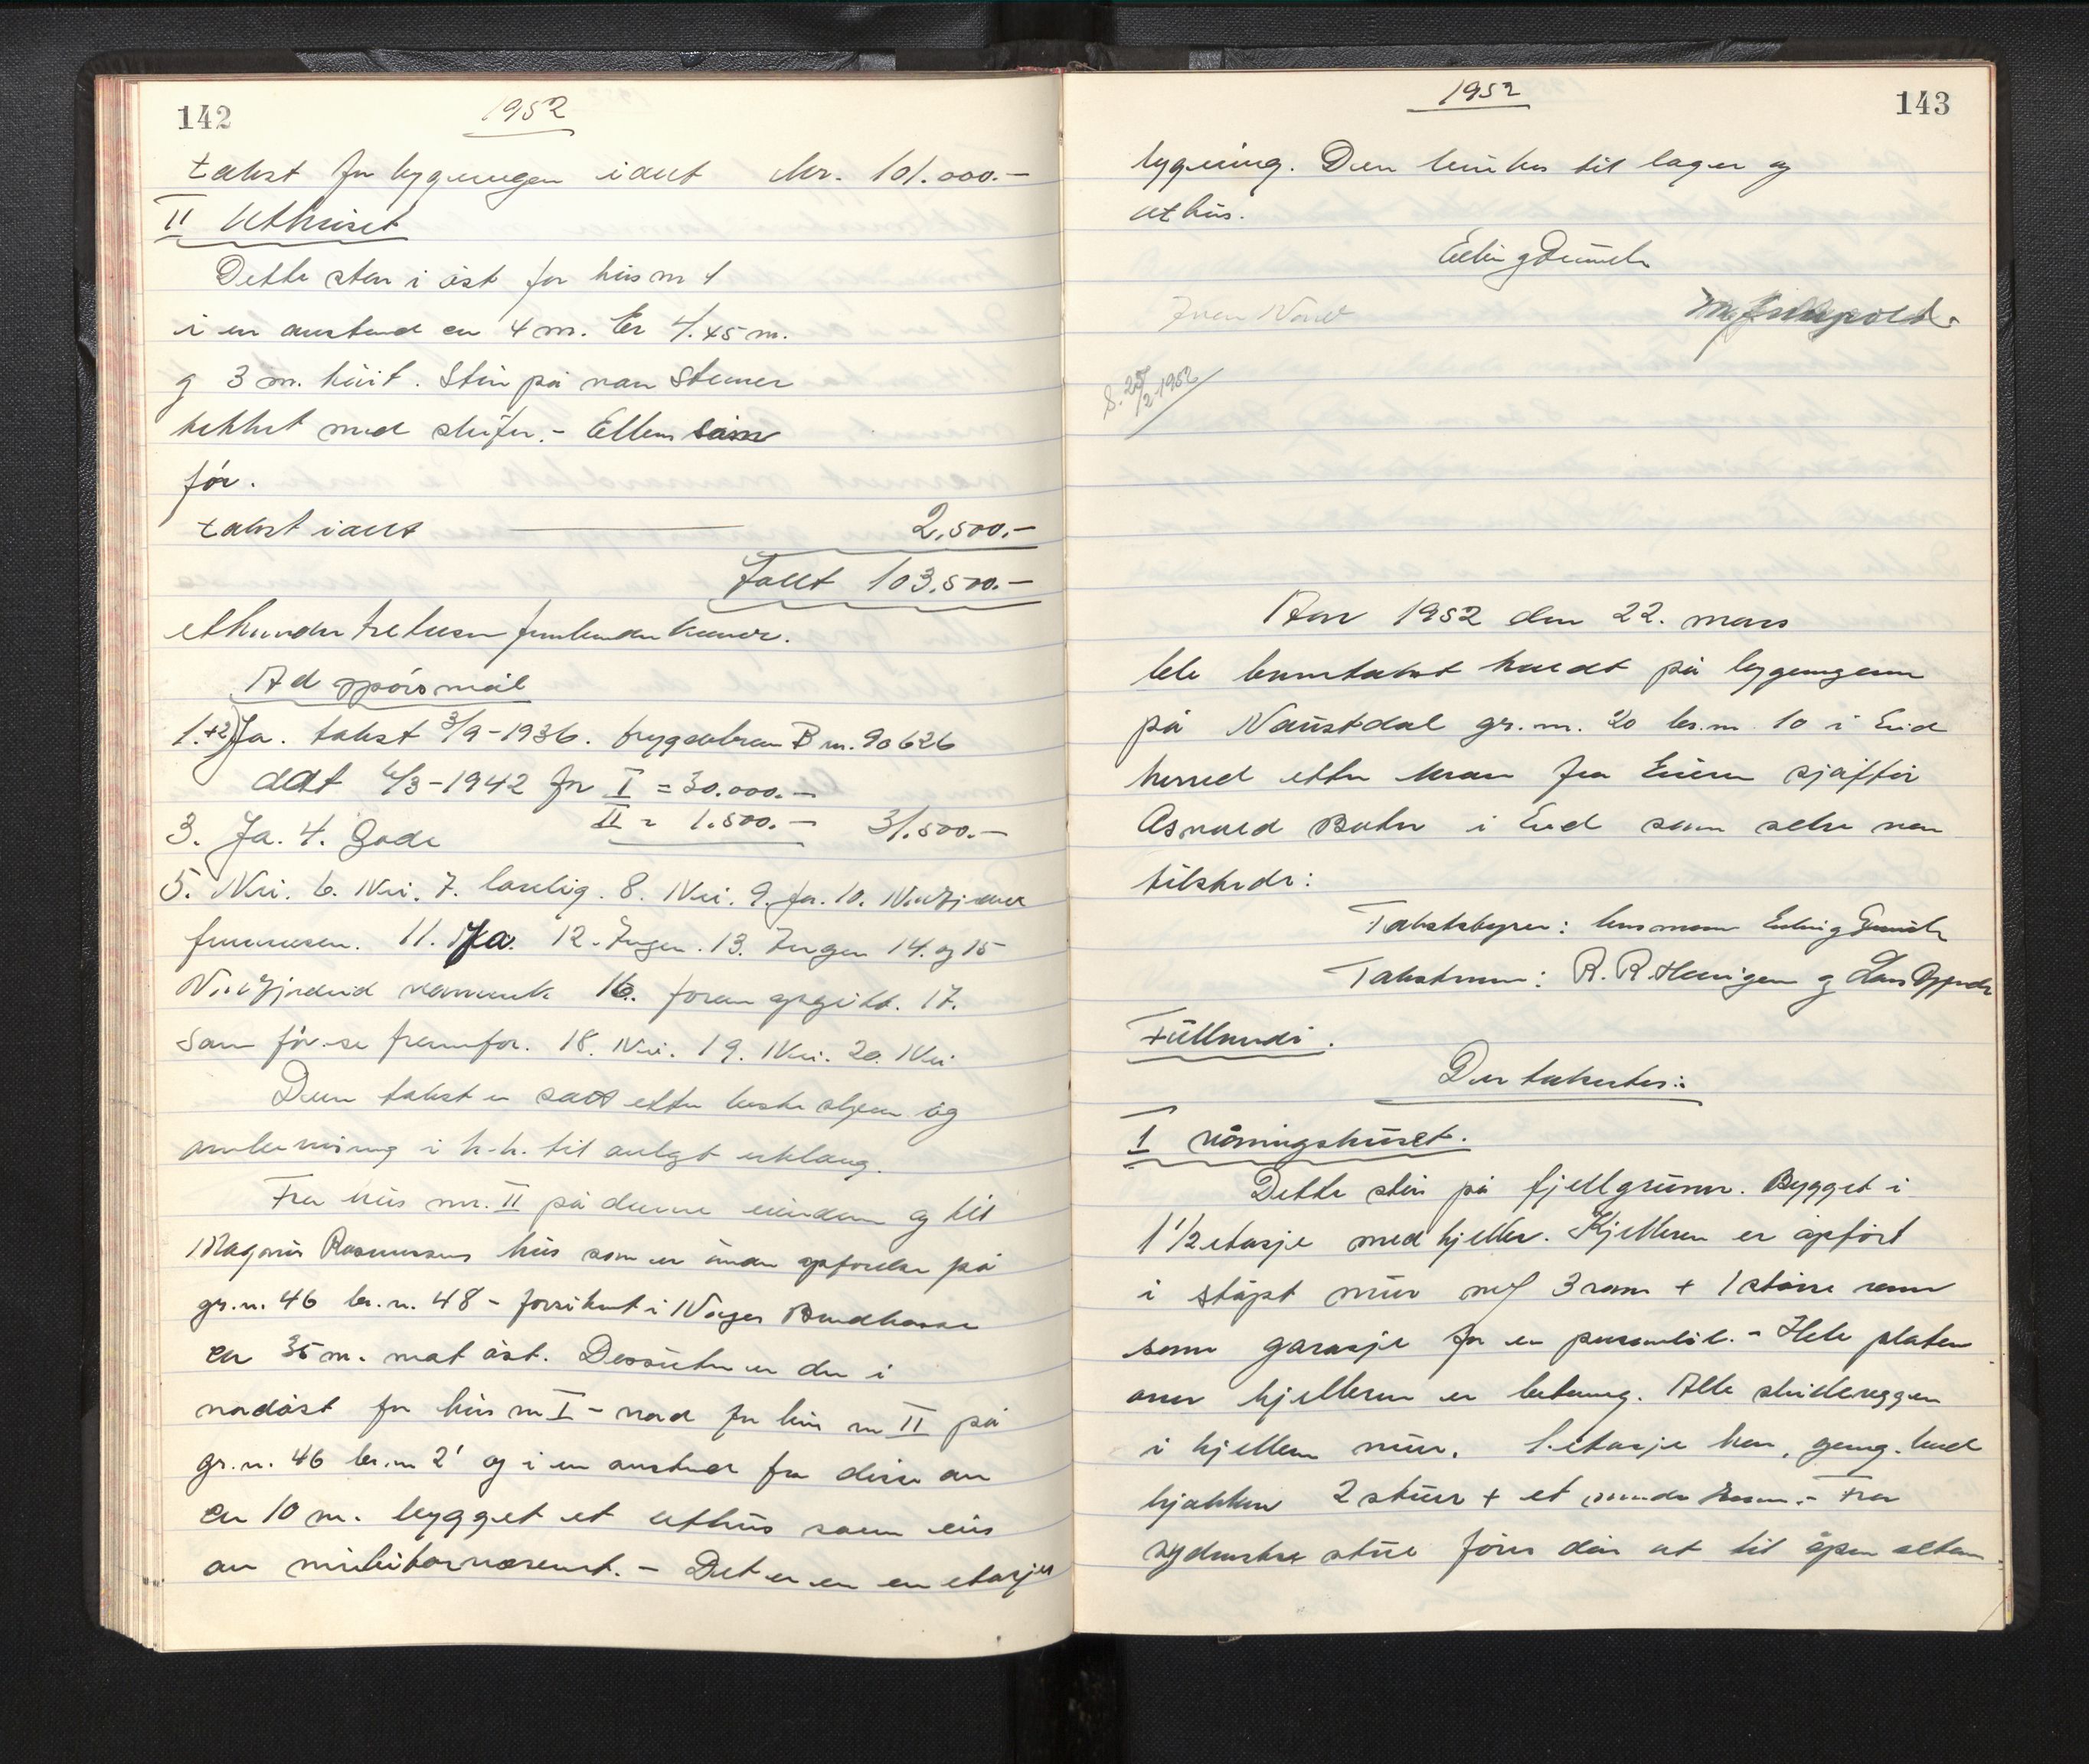 142
1952
takst for bygningen ialt kr. 101.000.-
II Uthuset
Dette står i øst for hus nr 1
i en avstand ca 4 m. Er 4.45 m.
og 3 m. høit. Står på
tekket med skifer. - Ellers som
før.
takst ialt 2.500.-
Ialt 103.500.-
ethundre tretusen femhundre kroner.
Ad spørsmål
1.+2) Ja. takst 3/9-1936. B nr. 90626
dat 6/3-1942 for I = 30.000.-
II = 1.500.- 31.500.-
3. Ja. 4. Gode
5. Nei. 6. Nei. 7. 8. Nei. 9. Ja. 10.
11. Ja. 12. Ingen. 13. Ingen 14. og 15
16. foran opgitt. 17.
Som før - se framfor. 18. Nei. 19. Nei. 20. Nei
Denne takst er satt etter beste skjøn og
i h.h. til avlagt erklæring.
Fra hus nr. II på denne eiendom og til
Magnus Rasmussens hus som er under opførelse på
gr.n. 46 br.n. 48 - forsikret i Norges Brandkasse
ca 35 m. mot øst. Dessuten er der i
nordøst for hus nr I - nord for hus nr II på
gr.n. 46 br.nr 2 og i en avstand fra disse av
ca 10 m. bygget et uthus som eies
av militærvæsenet. - Det er en en etasjes
1952
143
bygning. Den brukes til lager og
uthus.
S. 25/2-1952
Aar 1952 den 22. mars
ble branntakst holdt på bygningene
på Naustdal gr.nr. 20 br.nr 10 i Eid
herred etter krav fra Eieren sjåfør
Asvald i Eid som selv var
tilstede:
Takstbestyrer: lensmann Erling
Takstmenn: R. R. og Lars
Følknde.
Der takertes:
I våningshuset.
Dette står på fjellgrunn. Bygget i
1 1/2 etasje med kjeller. Kjelleren er opført
i støpt mur med 3 rom + 1 større rom
som garasje for en personbil. - Hele platen
over kjelleren er betong. Alle skillevegger
i kjelleren mur. 1. etasje har, gang, bad
kjøkken 2 stuer + et mindre rom. - Fra
sydvestre stue føres dør ut til åpen altan